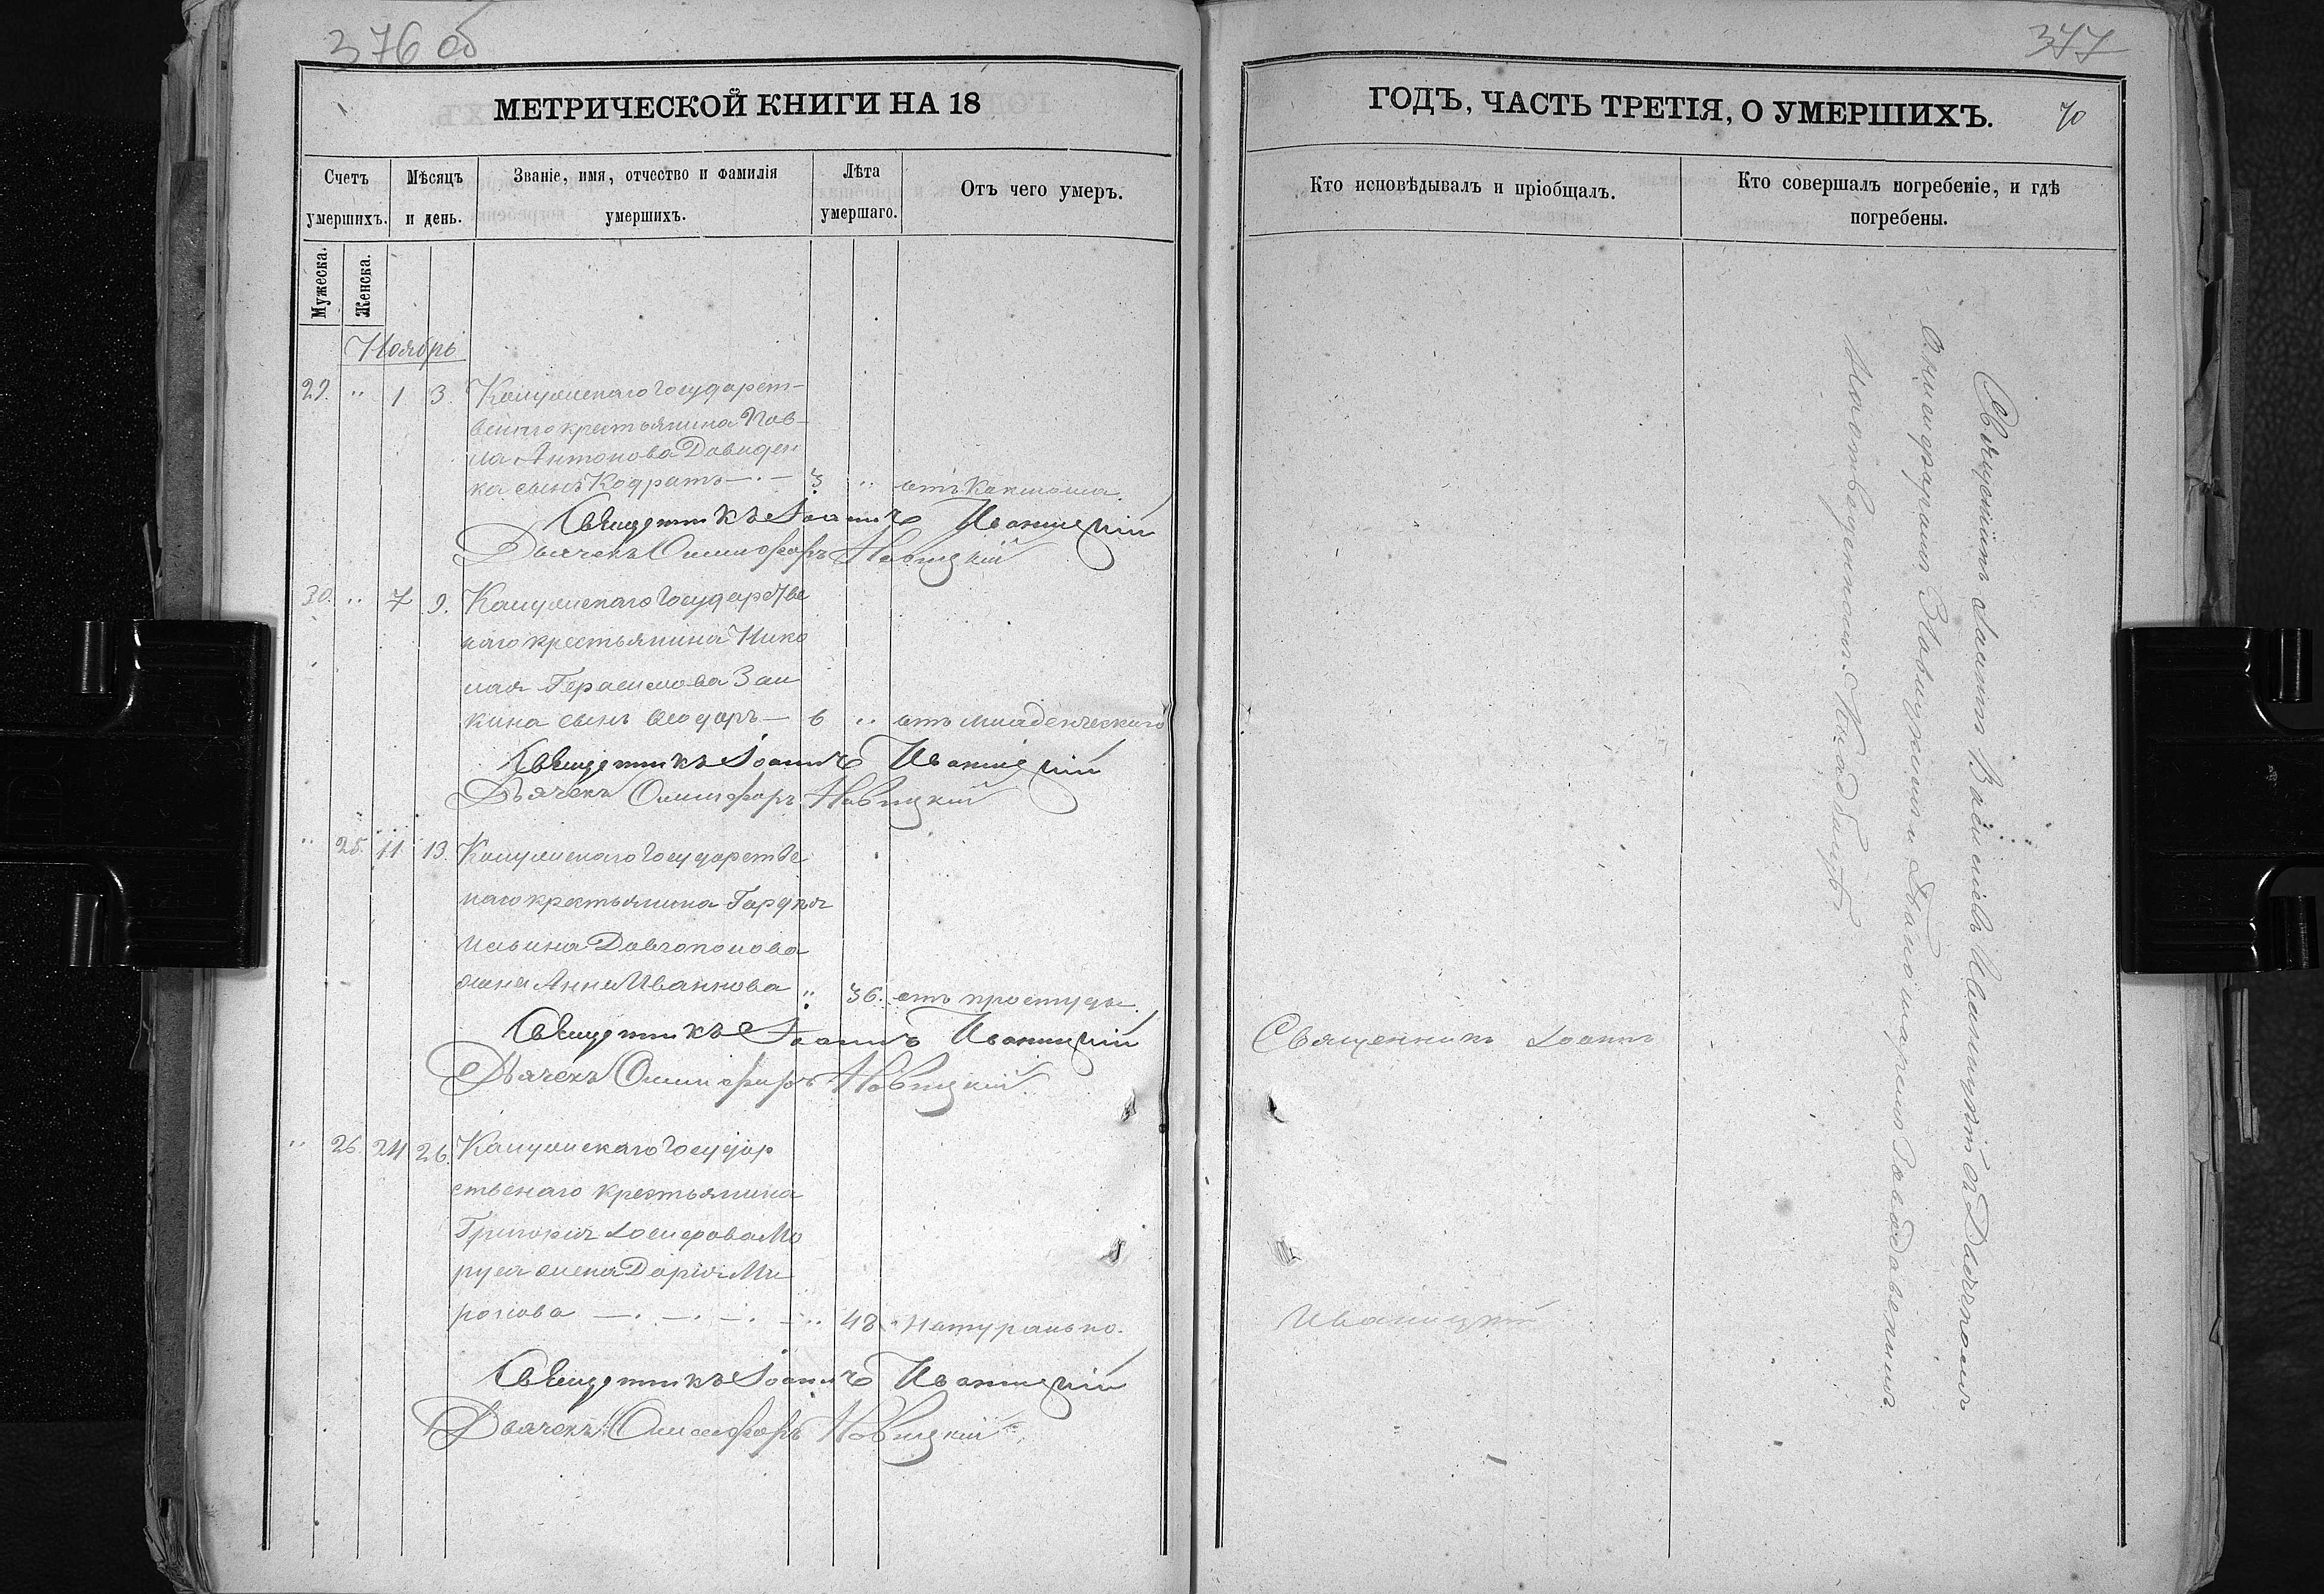 376 об
МЕТРИЧЕСКОЙ КНИГИ НА 18
Счетъ умершихъ.
Мѣсяцъ и день.
Званіе, имя, отчество и фамилія умершихъ.
Лѣта умершаго.
Отъ чего умеръ.
Мужеска.
Женска.
Ноябрь
29. " 1 3. государст-
веннаго крестьянина Пав-
ла Антонова Давиден
ка сынъ Кодратъ 3 " отъ Коклюша.
Священникъ Іоаннъ Иваницкій
Дьячекъ Онисифоръ Новицкій
30. " 7 9. государстве
наго крестьянина Нико
лая Герасимова Заи
кина сынъ Ѳеодоръ 6 " отъ младенческаго
Священникъ Іоаннъ Иваницкій
Дьячекъ Онисифоръ Новицкій
" 25. 11. 13. государстве
наго крестьянина Гордѣя
Ильина Довгополова
жена Анна Иванова " 36. отъ простуды.
Священникъ Іоаннъ Иваницкій
Дьячекъ Онисифоръ Новицкій
" 26. 24 26. государ
ственаго крестьянина
Григорія Іосифова Мо
руса жена Дарія Ми
ронова 48 " Натурально.
Священникъ Іоаннъ Иваницкій
Дьячекъ Онисифоръ Новицкій
377
ГОДЪ, ЧАСТЬ ТРЕТІЯ, О УМЕРШИХЪ.
70
Кто исповѣдывалъ и пріобщалъ.
Кто совершалъ погребеніе, и гдѣ погребены.
Священникъ Іоаннъ
Иваницкій
Священникъ Іоаннъ Иваницкій съ Дьячкомъ
Онисифоромъ Новицкимъ и
На отведенномъ Кладбищѣ